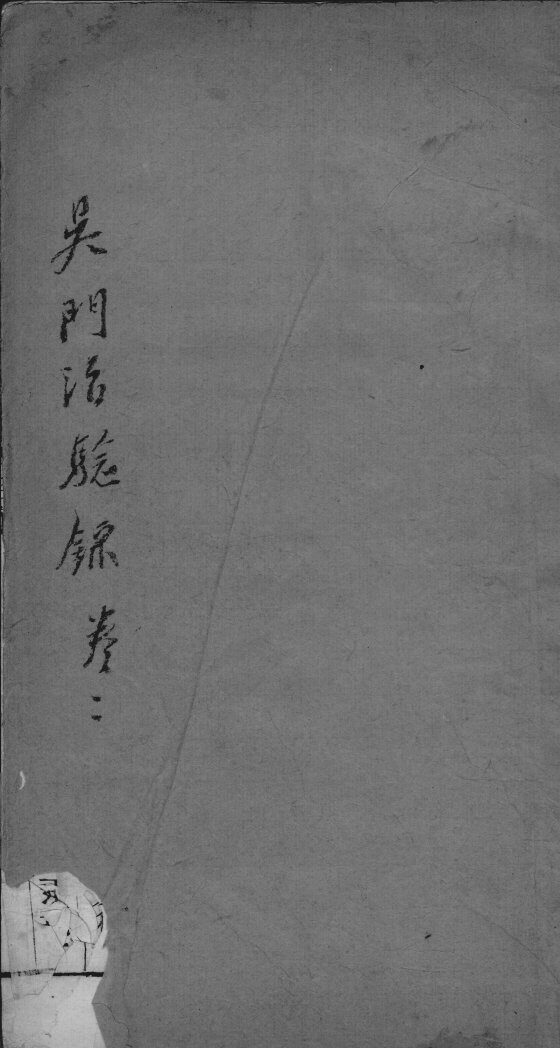 吳門治驗錄 卷二